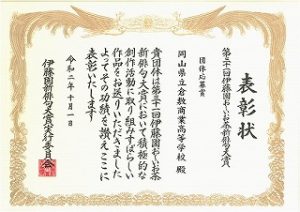 表彰状
第三十一回伊藤園お～いお茶新俳句大賞
団体応募賞
岡山県立倉敷商業高等学校 殿
貴団体は第三十一回伊藤園お～いお茶
新俳句大賞において積極的な
創作活動に取り組みすばらしい
作品をお送りいただきました
よってその功績を讃えここに
表彰いたします
令和二年十月一日
伊藤園新俳句大賞実行委員会